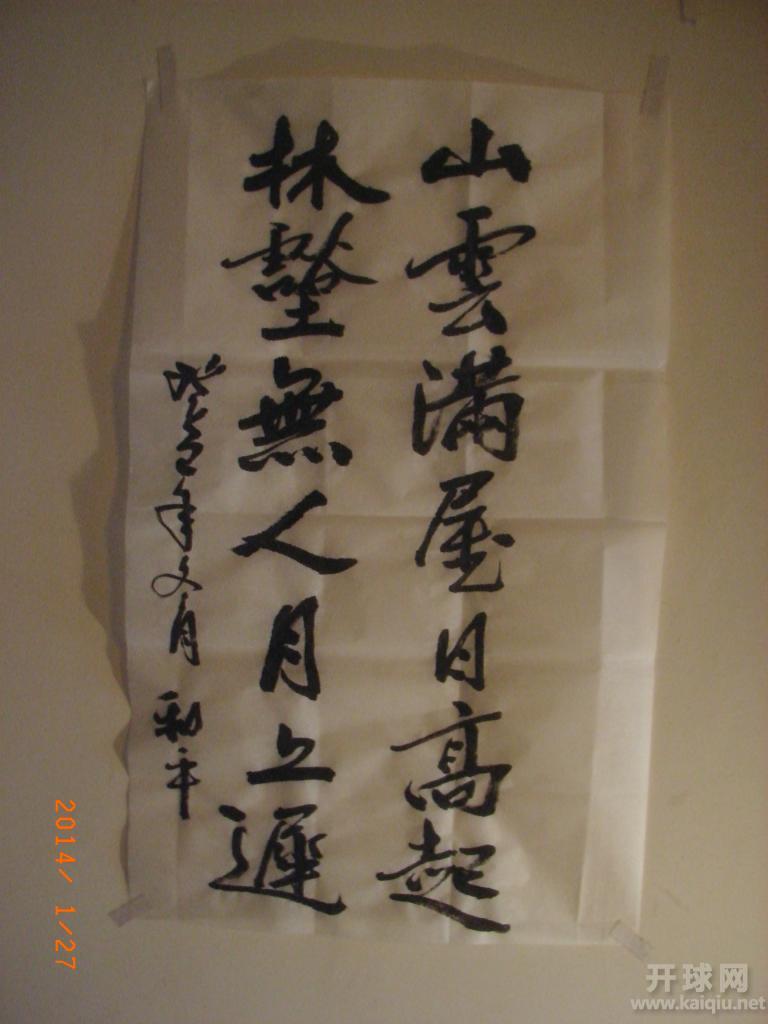 山雲滿屋日高起
林壑無人月上遲
癸巳年文月 和平
2014/ 1/27
开球网
www.kaiqiu.net